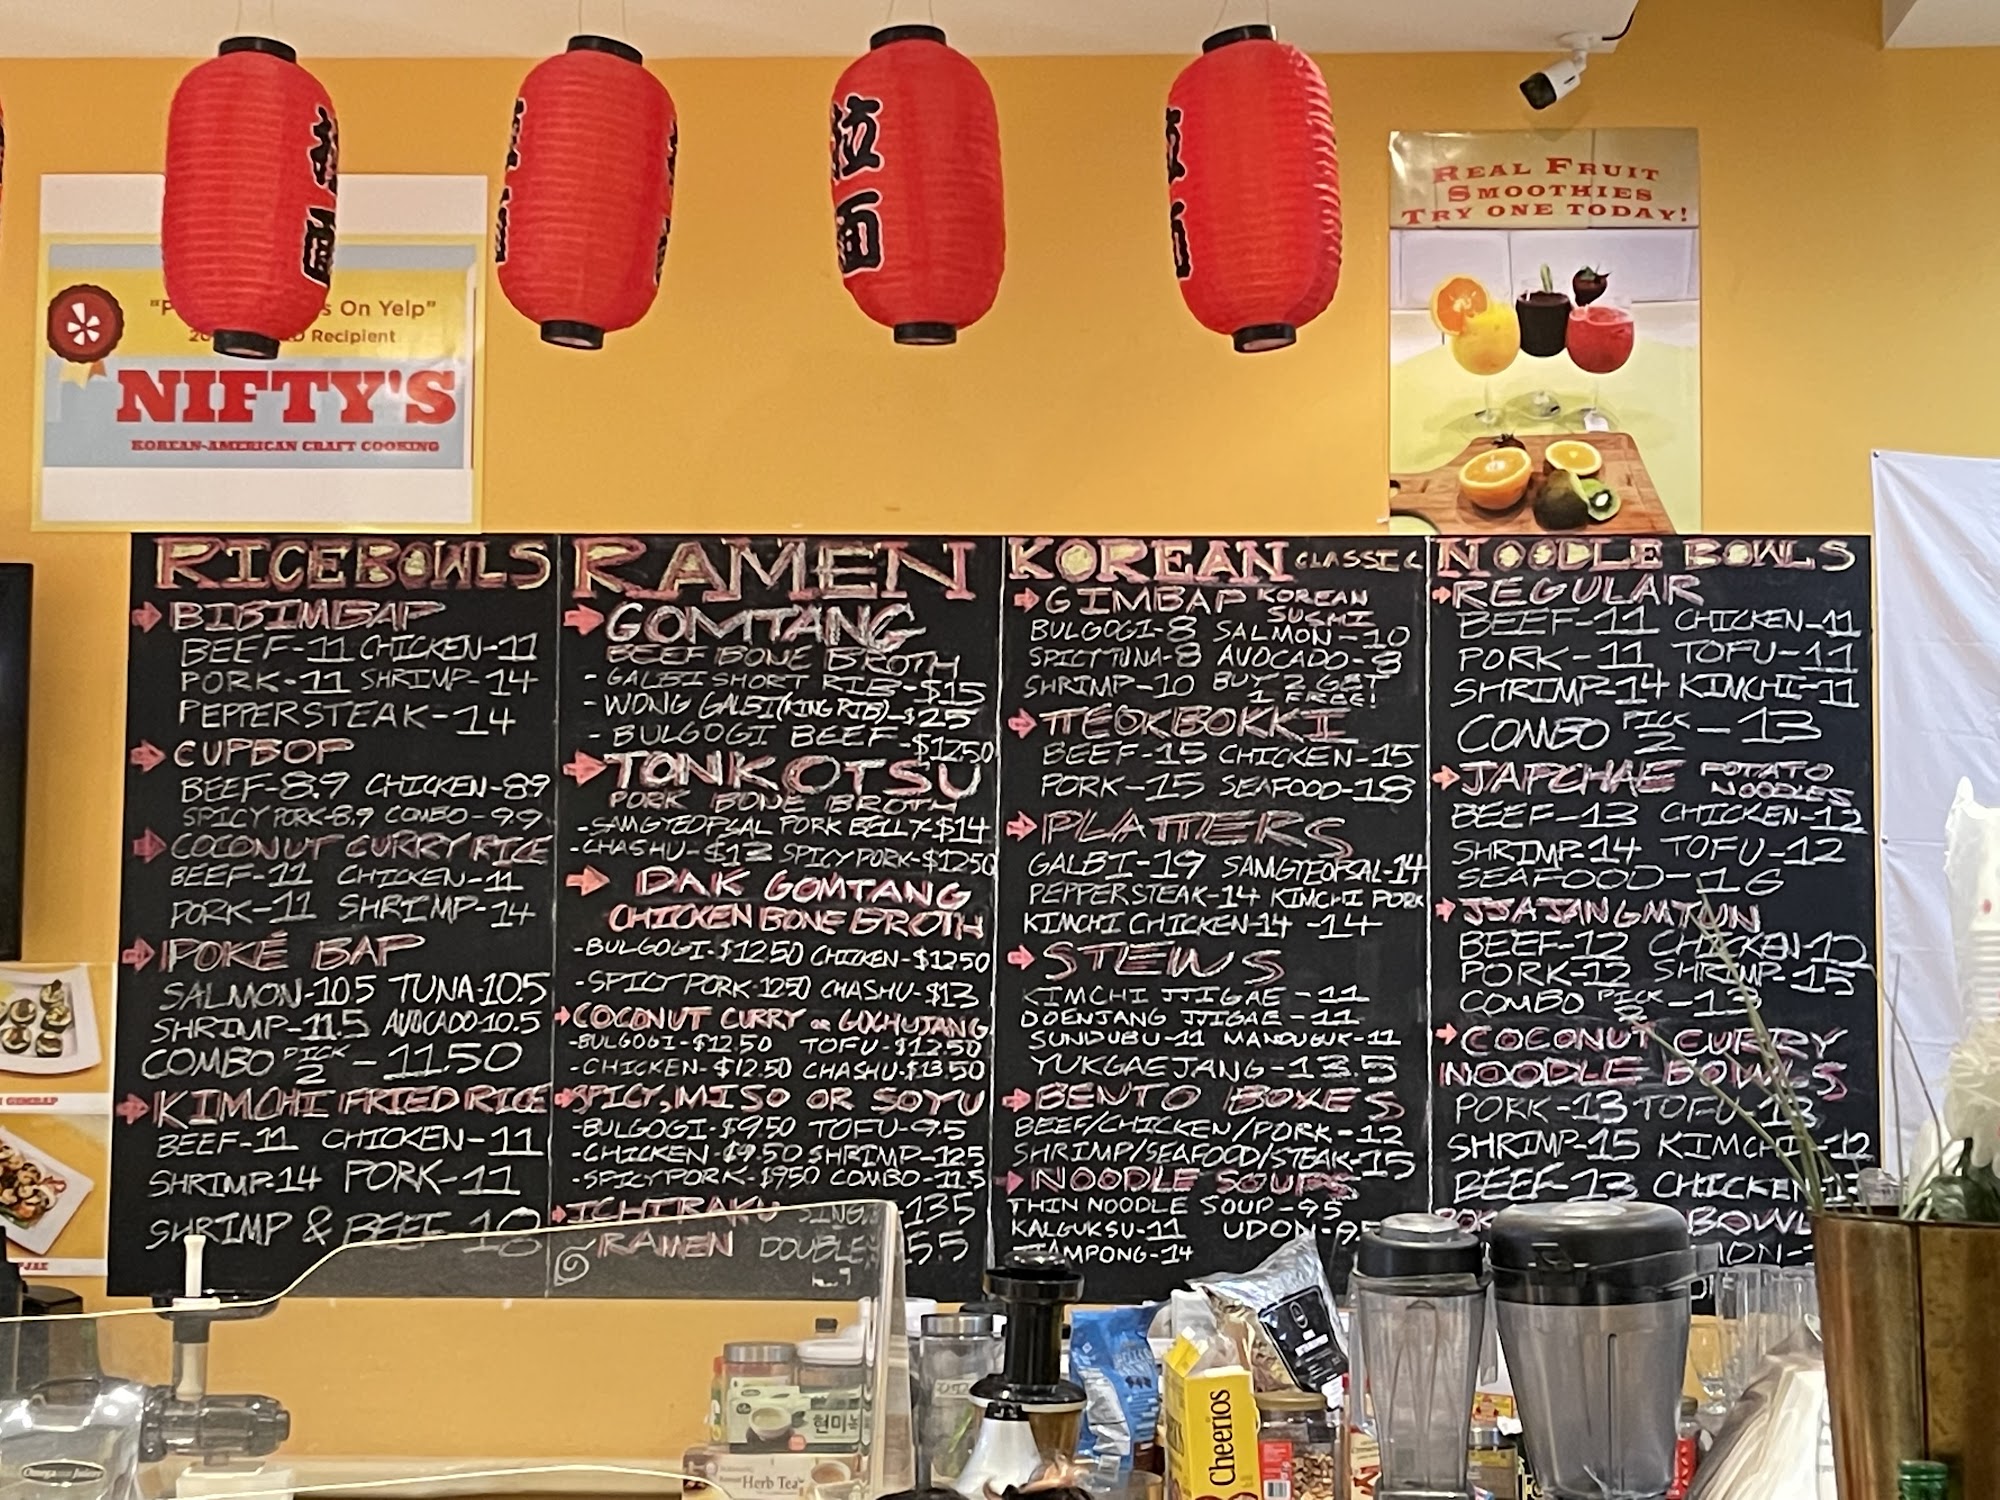 拉面
REAL FRUIT
SMOOTHIES
TRY ONE TODAY!
On Yelp"
Recipient
NIFTY'S
KOREAN-AMERICAN CRAFT COOKING
RICE BOWLS
BIBIMBAP
BEEF-11 CHICKEN-11
PORK-11 SHRIMP-14
PEPPERSTEAK-14
CUPBOP
BEEF-8.9 CHICKEN-8.9
SPICY PORK-8.9 COMBO-9.9
COCONUT CURRY RICE
BEEF-11 CHICKEN-11
PORK-11 SHRIMP-14
POKÉ BAP
SALMON-10.5 TUNA-10.5
SHRIMP-11.5 AVOCADO-10.5
COMBO PICK 2 - 11.50
KIMCHI FRIED RICE
BEEF-11 CHICKEN-11
SHRIMP-14 PORK-11
SHRIMP & BEEF 18
RAMEN
GOMTANG
BEEF BONE BROTH
- GALBI SHORT RIB-$15
- WONG GALBI (KING RIB)-$25
- BULGOGI BEEF-$12.50
TONKOTSU
PORK BONE BROTH
-SAMGYEOPSAL PORK BELLY-$14
-CHASHU-$13 SPICY PORK-$12.50
DAK GOMTANG
CHICKEN BONE BROTH
-BULGOGI-$12.50 CHICKEN-$12.50
-SPICY PORK-12.50 CHASHU-$13
COCONUT CURRY OR GOCHUJANG
-BULGOGI-$12.50 TOFU-$12.50
-CHICKEN-$12.50 CHASHU-$13.50
SPICY, MISO OR SOYU
-BULGOGI-$9.50 TOFU-9.5
-CHICKEN-$9.50 SHRIMP-12.5
-SPICY PORK-$9.50 COMBO-11.5
ICHIRAKU -13.5
RAMEN DOUBLE 5.5
KOREAN CLASSIC
GIMBAP KOREAN SUSHI
BULGOGI-8 SALMON-10
SPICY TUNA-8 AVOCADO-8
SHRIMP-10 BUY 2 GET 1 FREE!
TTEOKBOKKI
BEEF-15 CHICKEN-15
PORK-15 SEAFOOD-18
PLATTERS
GALBI-19 SAMGYEOPSAL-14
PEPPERSTEAK-14 KIMCHI PORK
KIMCHI CHICKEN-14 -14
STEWS
KIMCHI JJIGAE-11
DOENJANG JJIGAE-11
SUNDUBU-11 MANDUGUK-11
YUKGAEJANG-13.5
BENTO BOXES
BEEF/CHICKEN/PORK-12
SHRIMP/SEAFOOD/STEAK-15
NOODLE SOUPS
THIN NOODLE SOUP-9.5
KALGUKSU-11 UDON-9.
JJAMPONG-14
NOODLE BOWLS
REGULAR
BEEF-11 CHICKEN-11
PORK-11 TOFU-11
SHRIMP-14 KIMCHI-11
COMBO PICK 2 - 13
JAPCHAE POTATO NOODLES
BEEF-13 CHICKEN-12
SHRIMP-14 TOFU-12
SEAFOOD-16
JJAJANGMYUN
BEEF-12 CHICKEN-12
PORK-12 SHRIMP-15
COMBO PICK 2 - 13
COCONUT CURRY
NOODLE BOWLS
PORK-13 TOFU-13
SHRIMP-15 KIMCHI-12
BEEF-13 CHICKEN
BOWL
현미녹
Herb Tea
Cheerios